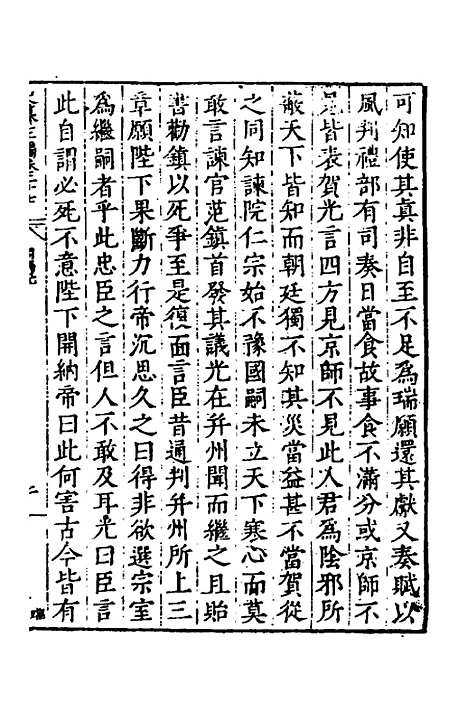 可知使其真非自至不足爲瑞願還其獻又奏賦以
風判禮部有司奏日當食故事食不滿分或京師不
見皆表賀光言四方見京師不見此人君爲陰邪所
蔽天下皆知而朝廷獨不知其災當益甚不當賀從
之同知諫院仁宗始不豫國嗣未立天下寒心而莫
敢言諫官范鎮首發其議光在幷州聞而繼之且貽
書勸鎮以死爭至是復面言臣昔通判幷州所上三
章願陛下果斷力行帝沉思久之曰得非欲選宗室
爲繼嗣者乎此忠臣之言但人不敢及耳光曰臣言
此自謂必死不意陛下開納帝曰此何害古今皆有